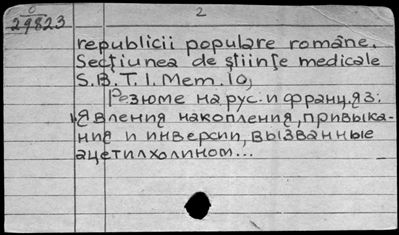 0
29823
2
republicii populare române.
Secţiunea de ştiinţe medicale
S.B.T.1.Mem.10;
Резюме на рус. и франц.яз.:
явления накопления, привыка-
ния и инверсии, вызванные
ацетилхолином...